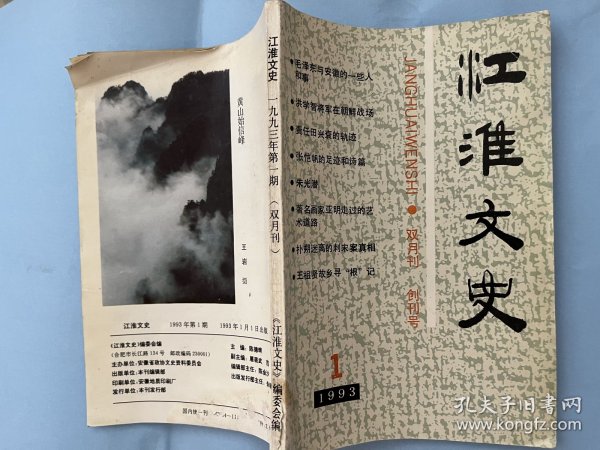 江淮文史
JIANGHUAIWENSHI
双月刊 创刊号
毛泽东与安徽的一些人
和事
洪学智将军在朝鲜战场
责任田兴衰的轨迹
张恺帆的足迹和诗篇
朱光潜
著名画家亚明走过的艺
术道路
扑朔迷离的刺宋案真相
王祖贤故乡寻“根”记
1
1993
江淮文史 一九九三年第一期 (双月刊) 《江淮文史》编委会编
黄山始信峰
王岩
江淮文史 1993年第1期 1993年1月1日出版
《江淮文史》编委会编
(合肥市长江路134号 邮政编码230001)
主办单位:安徽省政协文史资料委员会
出版单位:本刊编辑部
印刷单位:安徽地质印刷厂
发行单位:本刊发行部
主编:陈德明
副主编:
编辑部主任:
出版发行部主任:
国内统一刊
孔夫子旧书网
www.kongfz.com